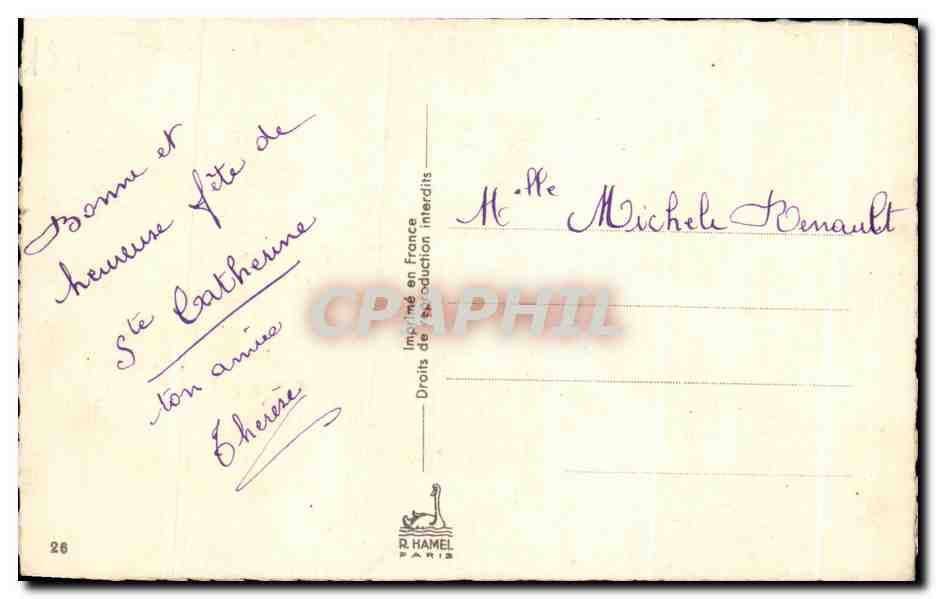 Bonne et
heureuse fête de
Ste Catherine
ton amie
Thérèse
Imprimé en France
Droits de reproduction interdits
Melle Michele Renault
CPAPHIL
R. HAMEL
PARIS
26